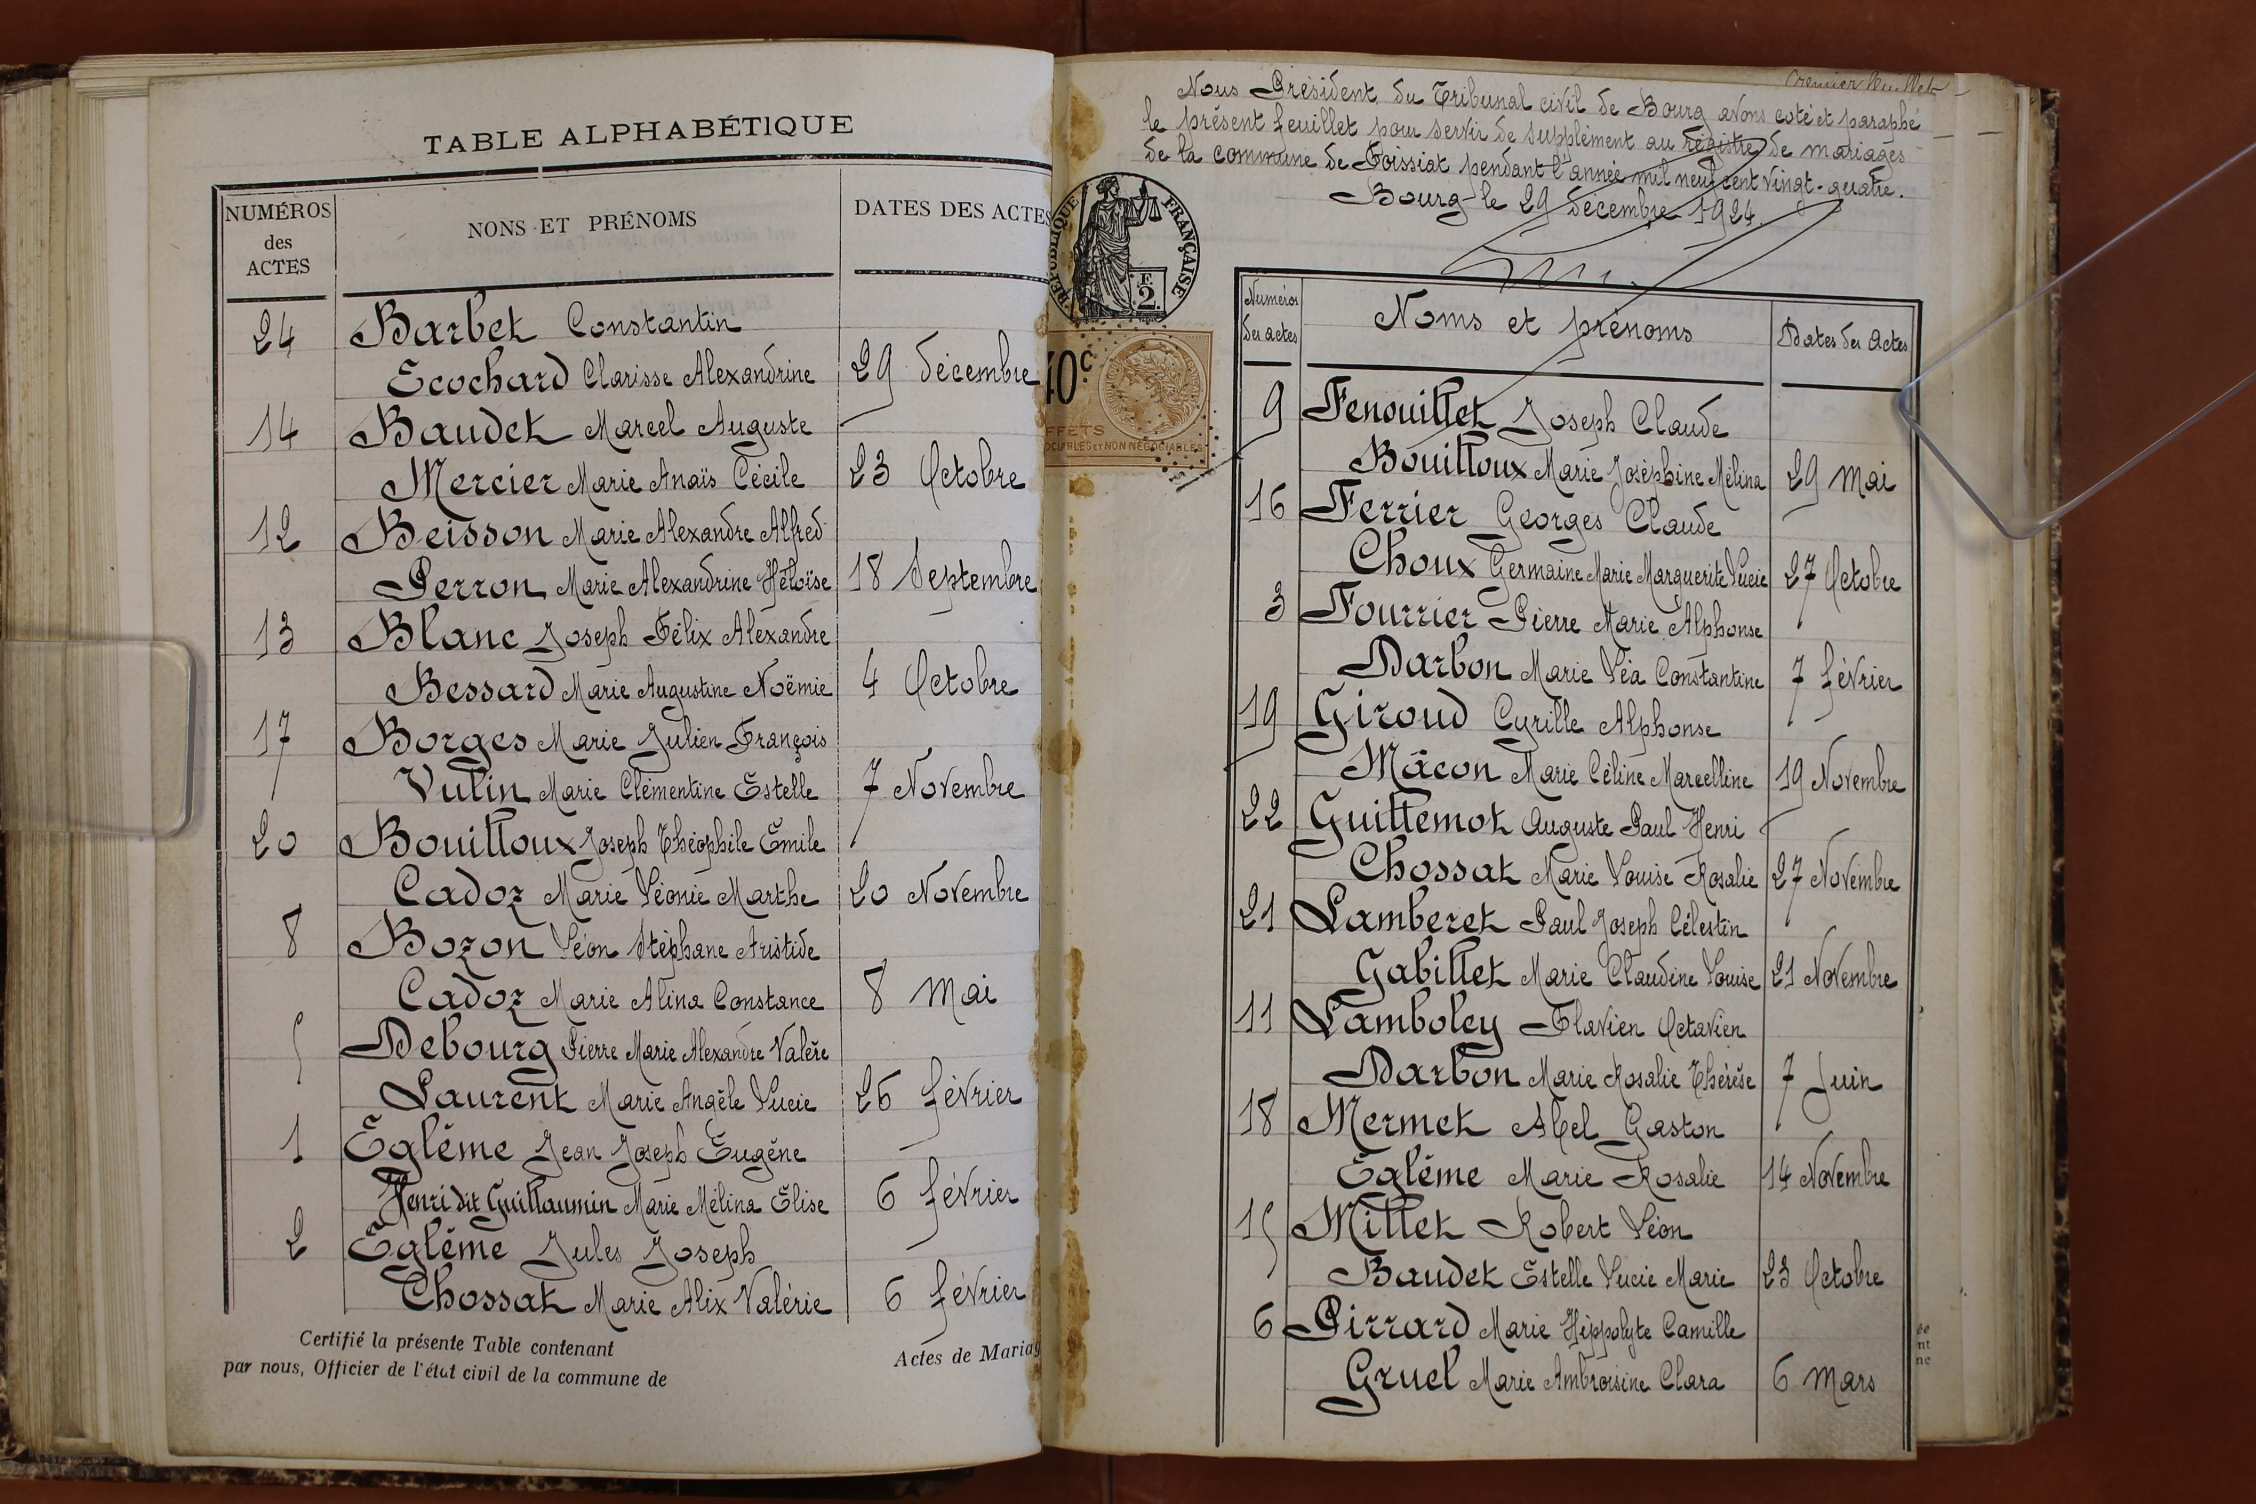 TABLE ALPHABÉTIQUE
NUMÉROS des ACTES
NONS ET PRÉNOMS
DATES DES ACTES
24 Barbet Constantin
Ecochard Clarisse Alexandrine 29 décembre
14 Baudet Marcel Auguste
Mercier Marie Anaïs Cécile 23 Octobre
12 Beisson Marie Alexandre Alfred
Perron Marie Alexandrine Héloïse 18 Septembre
13 Blanc Joseph Félix Alexandre
Bessard Marie Augustine Noëmie 4 Octobre
17 Borges Marie Julien François
Vulin Marie Clémentine Estelle 7 Novembre
20 Bouilloux Joseph Théophile Emile
Cadoz Marie Léonie Marthe 20 Novembre
8 Bozon Léon Stéphane Aristide
Cadoz Marie Alina Constance 8 Mai
5 Debourg Pierre Marie Alexandre Valère
Laurent Marie Angèle Lucie 26 février
1 Eglème Jean Joseph Eugène
Henri dit Guillaumin Marie Mélina Elise 6 février
2 Eglème Jules Joseph
Chossat Marie Alix Valérie 6 février
Certifié la présente Table contenant Actes de Mariag
par nous, Officier de l'état civil de la commune de
Premier feuillet
Nous Président du Tribunal civil de Bourg avons coté et paraphé
le présent feuillet pour servir de supplément au registre de mariages
de la commune de Foissiat pendant l'année mil neuf cent vingt-quatre.
Bourg le 29 décembre 1924.
RÉPUBLIQUE FRANÇAISE
F. 2.
40c
FFETS
OCIABLES ET NON NÉGOCIABLES
Numéros des actes
Noms et prénoms
Dates des Actes
9 Fenouillet Joseph Claude
Bouilloux Marie Joséphine Mélina 29 Mai
16 Ferrier Georges Claude
Choux Germaine Marie Marguerite Lucie 27 Octobre
3 Fourrier Pierre Marie Alphonse
Darbon Marie Léa Constantine 7 février
19 Giroud Cyrille Alphonse
Mâcon Marie Céline Marcelline 19 Novembre
22 Guillemot Auguste Paul Henri
Chossat Marie Louise Rosalie 27 Novembre
21 Lamberet Paul Joseph Célestin
Gabillet Marie Claudine Louise 21 Novembre
11 Lamboley Flavien Octavien
Darbon Marie Rosalie Thérèse 7 Juin
18 Mermet Abel Gaston
Eglème Marie Rosalie 14 Novembre
15 Millet Robert Léon
Baudet Estelle Lucie Marie 23 Octobre
6 Pirrard Marie Hippolyte Camille
Gruel Marie Ambroisine Clara 6 Mars